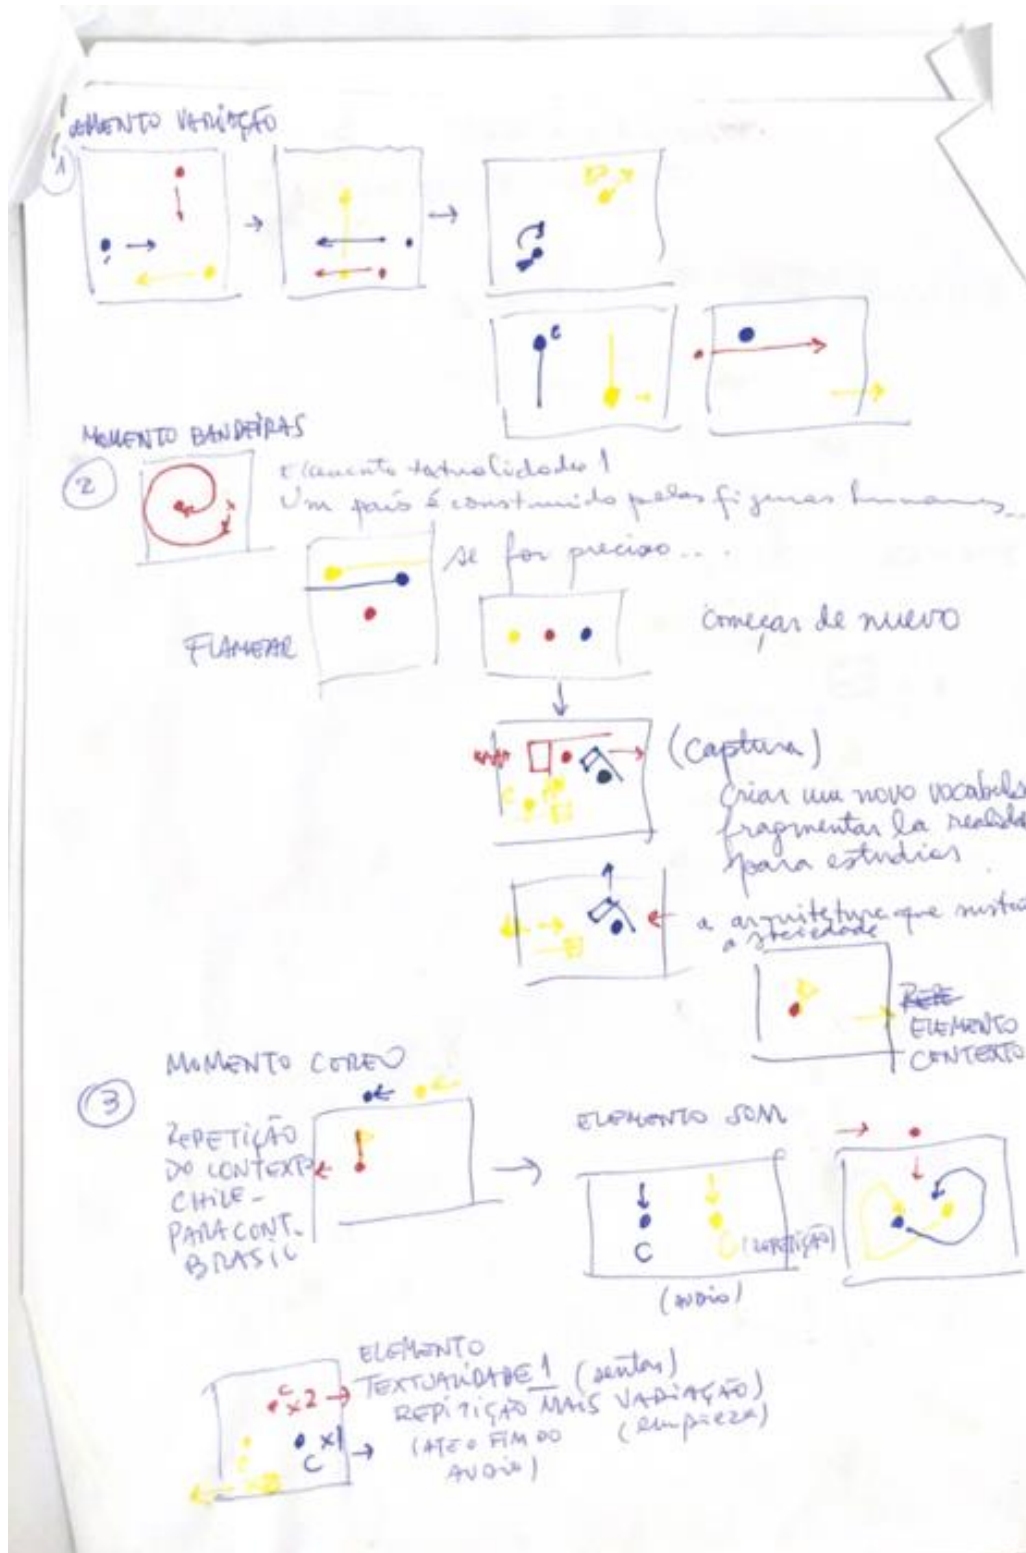 MOMENTO VARIAÇÃO
1
C
MOMENTO BANDEIRAS
2
Elemento textualidade 1
Um país é construido pelas figuras humanas...
se for preciso...
FLAMEAR
começar de nuevo
(captura)
criar um novo vocabul
fragmentar la realida
para estudiar
a arquitetura que susten
a sociedade
REPE
ELEMENTO
CONTEXTO
MOMENTO COREO
3
REPETIÇÃO
DO CONTEXTO
CHILE -
PARA CONT.
BRASIL
ELEMENTO SOM
C
C
(REPETIÇÃO)
(AUDIO)
ELEMENTO
TEXTUALIDADE 1 (sentar)
REPITIÇÃO MAIS VARIAÇÃO)
(ATE O FIM DO (empieza)
AUDIO)
C
x2
x1
C